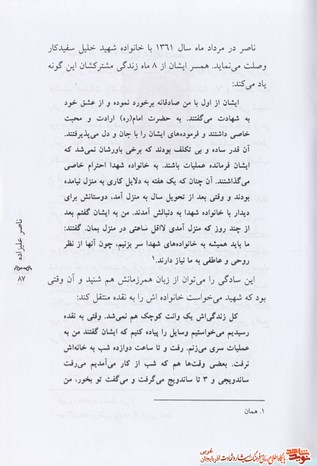 ناصر در مرداد ماه سال ۱۳۶۱ با خانواده شهید خلیل سفیدکار
وصلت می‌نماید. همسر ایشان از ۸ ماه زندگی مشترکشان این گونه
یاد می‌کند:
ایشان از اول با من صادقانه برخورد نموده و از عشق خود
به شهادت می‌گفتند. به حضرت امام(ره) ارادت و محبت
خاصی داشتند و فرموده‌های ایشان را با جان و دل می‌پذیرفتند.
آن قدر ساده و بی تکلف بودند که برخی باورشان نمی‌شد که
ایشان فرمانده عملیات باشند. به خانواده شهدا احترام خاصی
می‌گذاشتند. آن چنان که یک هفته به دلایل کاری به منزل نیامده
بودند و وقتی بعد از تحویل سال به منزل آمد، دوستانش برای
دیدار با خانواده شهدا به دنبالش آمدند. من به ایشان گفتم بعد
از چند روز که منزل آمدی لااقل ساعتی در منزل بمان. گفتند:
ما باید همیشه به خانواده‌های شهدا سر بزنیم، چون آنها از نظر
روحی و عاطفی به ما نیاز دارند.۱
این سادگی را می‌توان از زبان همرزمانش هم شنید و آن وقتی
بود که شهید می‌خواست خانواده اش را به نقده منتقل کند:
کل زندگی‌اش یک وانت کوچک هم نمی‌شد. وقتی به نقده
رسیدیم می‌خواستیم وسایل را پیاده کنیم که ایشان گفتند من به
عملیات سری می‌زنم. رفت و تا ساعت دوازده شب به خانه‌اش
نرفت. بعضی وقت‌ها هم که شب از کار می‌آمدیم می‌رفت
ساندویچی و ۳ تا ساندویچ می‌گرفت و می‌گفت تو بخور، من
۱. همان
ناصر علیزاده
۸۷